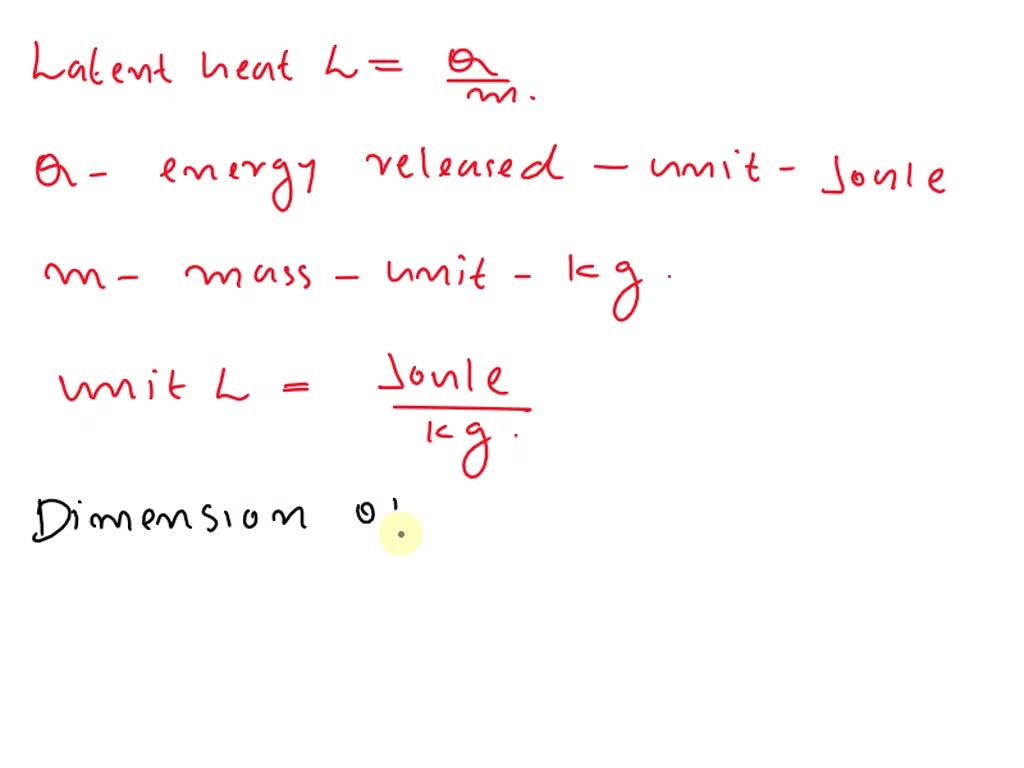 Latent heat L = Q/m.
Q - energy released - unit - Joule
m - mass - unit - kg.
unit L = Joule/kg.
Dimension